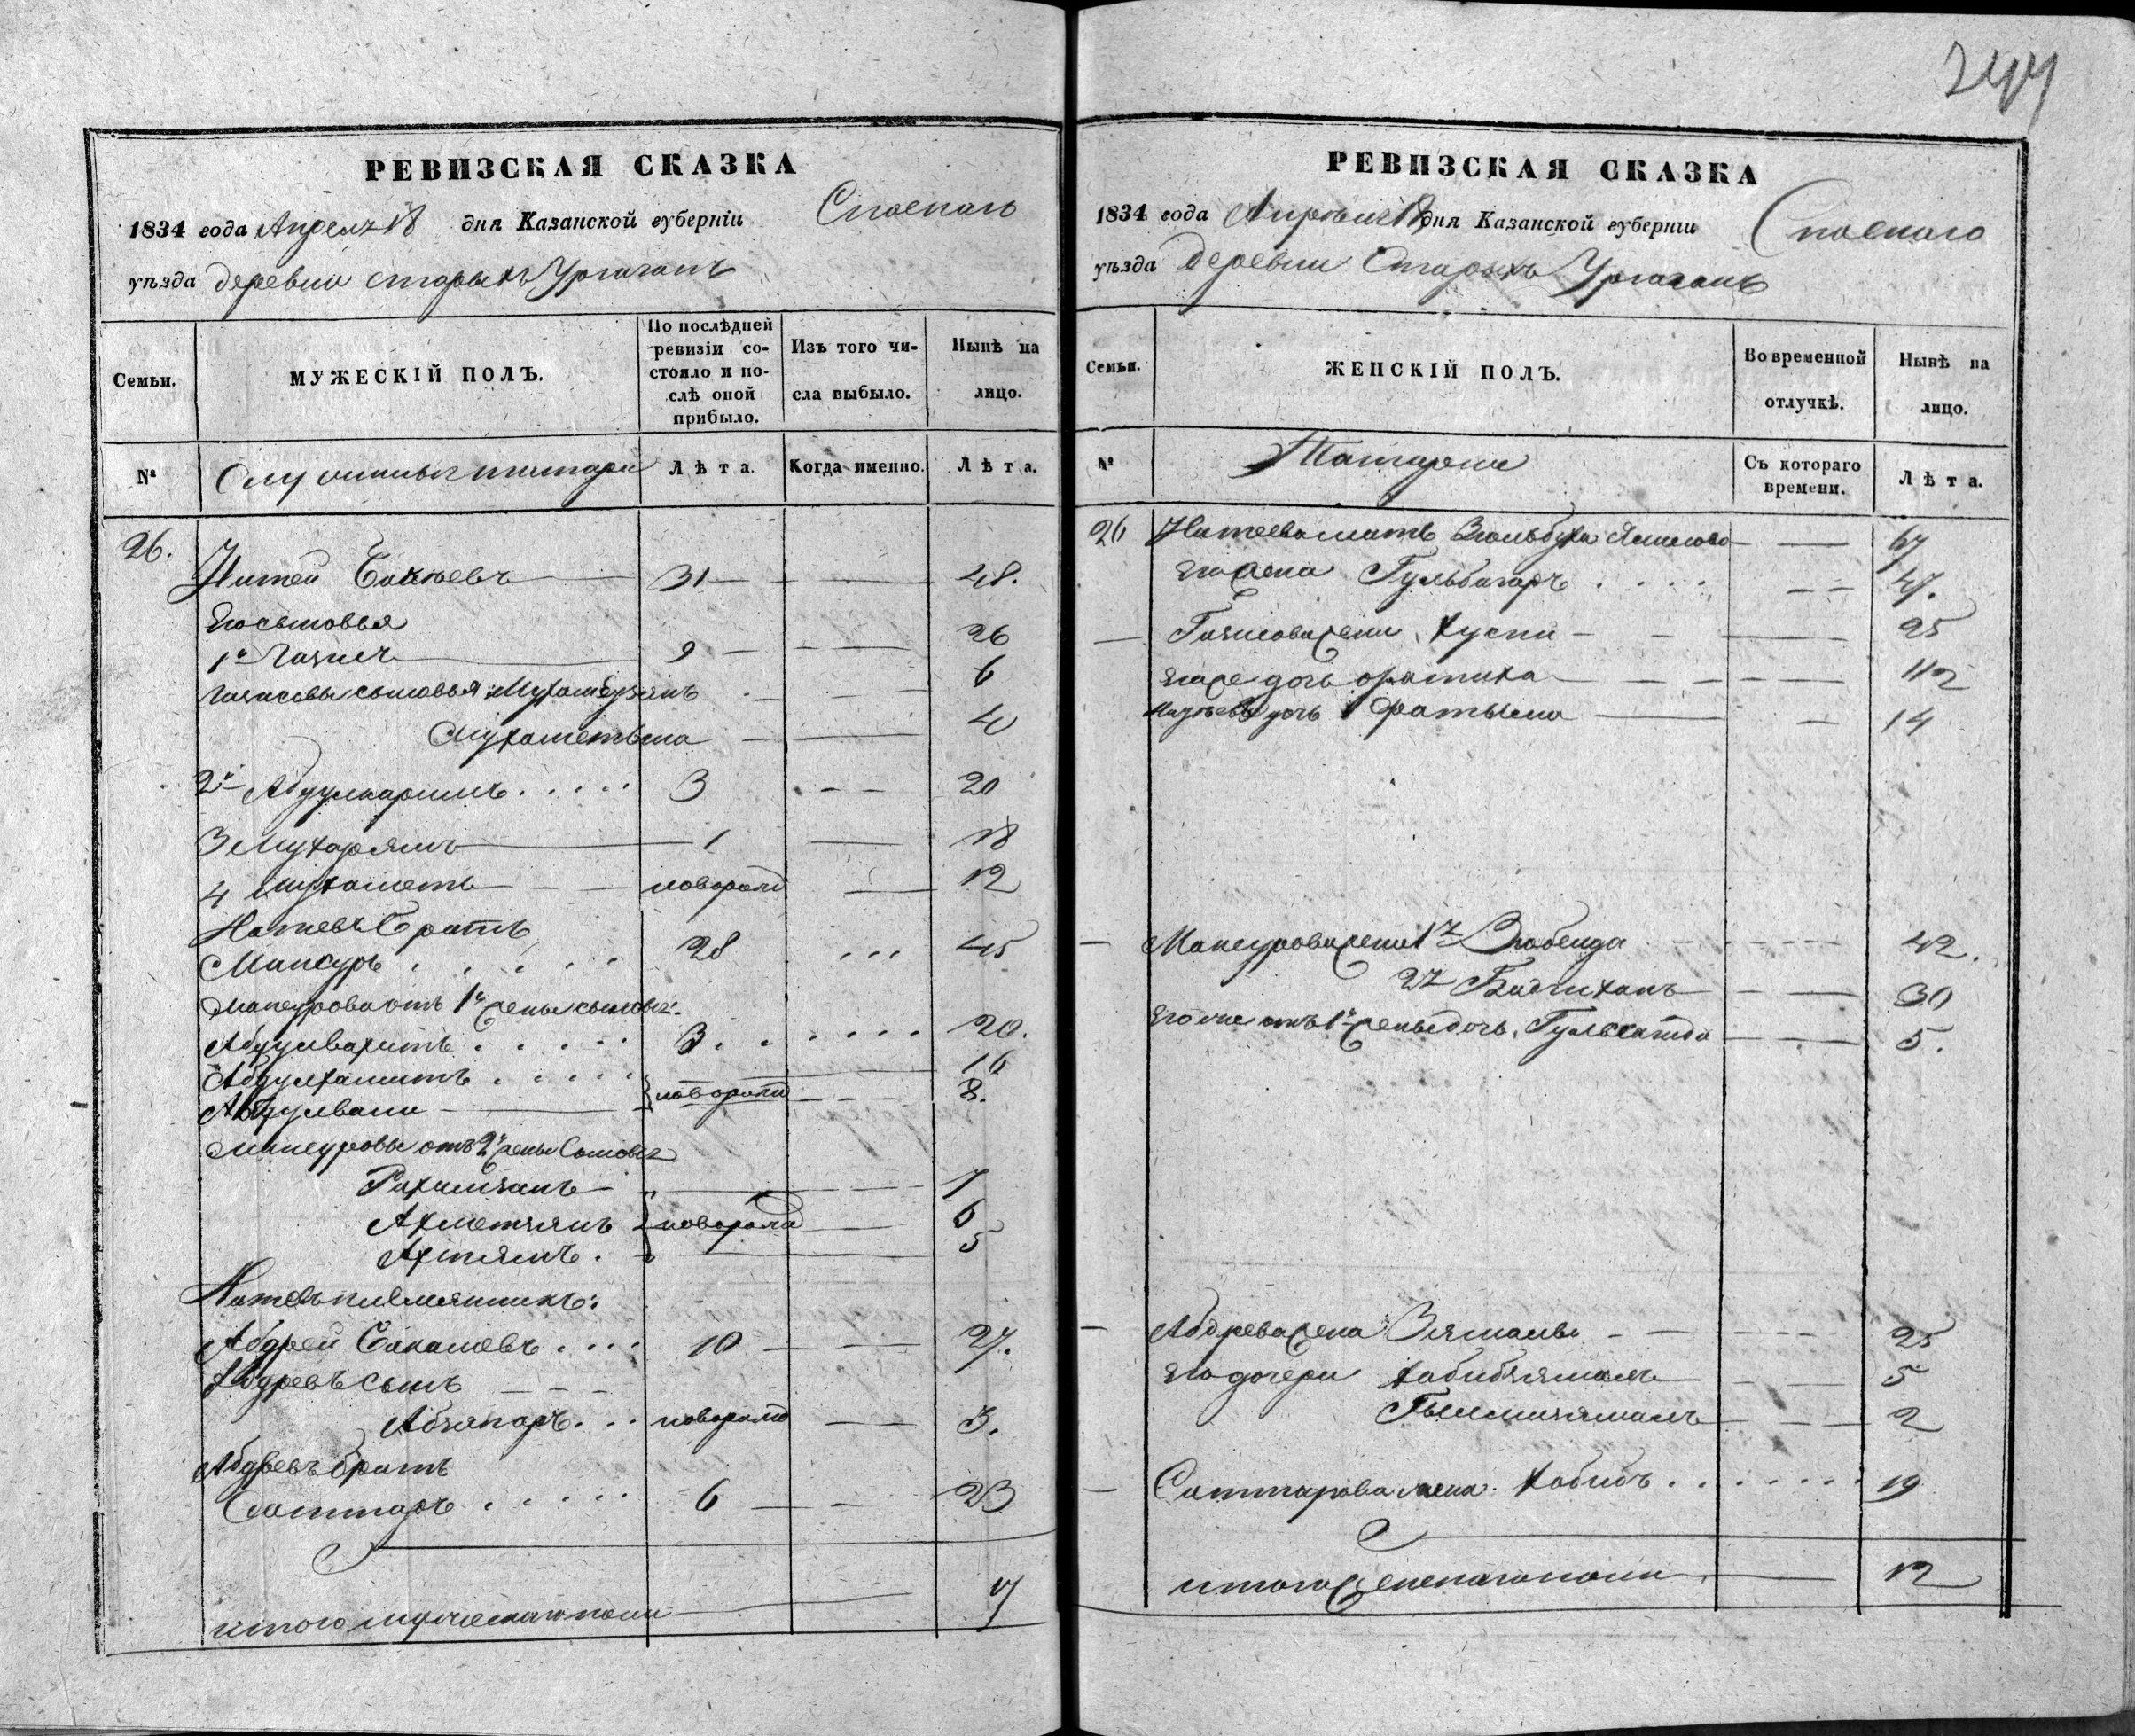 244
РЕВИЗСКАЯ СКАЗКА
1834 года Апреля 18 дня Казанской губерніи Спаскаго
уѣзда деревни старыхъ Ургаганъ
Семьи.
МУЖЕСКІЙ ПОЛЪ.
По послѣдней ревизіи состояло и послѣ оной прибыло.
Изъ того числа выбыло.
Нынѣ на лицо.
№
Служилые татары
Лѣта.
Когда именно.
Лѣта.
26.
Натей Бакѣевъ 31 48.
Его сыновья
1й Гаязъ 9 26
Гаязовы сыновья Мухамедзянъ 6
Мухаметьша 4
2й Абдулкаримъ 3 20
3 Мухарямъ 1 18
4 Мухаметь новорожд 12
Натеевъ братъ
Мансуръ 28 45
Мансурова отъ 1й жены сыновья
Абдулваритъ 3 20.
Абдулхамитъ 16
Абдулвали новорожд 8.
Мансуровы отъ 2й жены Сыновья
Рахимзанъ 7
Ахметзянъ новорожд 6
Ахтямъ 5
Натеевъ племянникъ:
Абдрей 10 27.
Абдревъ сынъ
Абзяпаръ новорожд 3.
Абдревъ братъ
Саттаръ 6 23
итого мужескаго пола 17
РЕВИЗСКАЯ СКАЗКА
1834 года Апреля 18 дня Казанской губерніи Спаскаго
уѣзда деревни Старыхъ Ургаганъ
Семьи.
ЖЕНСКІЙ ПОЛЪ.
Во временной отлучкѣ.
Нынѣ на лицо.
№
Татарки
Съ котораго времени.
Лѣта.
26 Натеева мать 67
Его жена Гульбагаръ 47.
Гаязова жена Хусни 25
Его же дочь Фатиха 1/2
Натѣева дочь Фатыма 14
Мансурова жены 1я Зюбейда 42.
2я Бадигжанъ 30
Его же отъ 1й жены дочь 5.
Абдрева жена Зямалъ 25
Его дочери Хабибзямалъ 5
2
Саттарова жена Хабибъ 19
итого женскаго пола 12